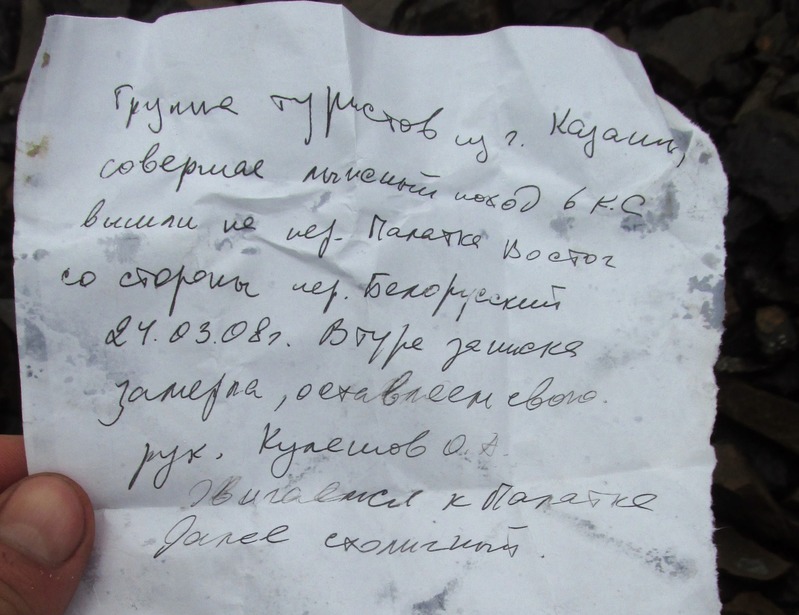 Группа туристов из г. Казани,
совершае лыжный поход 6 к.с
вышли на пер. Палатка Восточ
со стороны пер. Белорусский
24.03.08г. В туре записка
замерла, оставляем свою.
рук. Кулешов О.
Двигаемся к Палатке
Далее столичный.